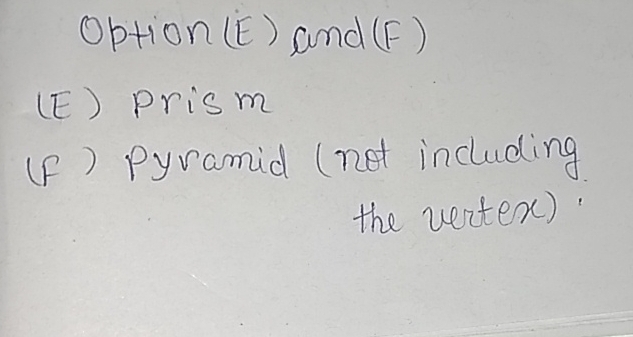 Option (E) and (F)
(E) prism
(F) pyramid (not including
the vertex).